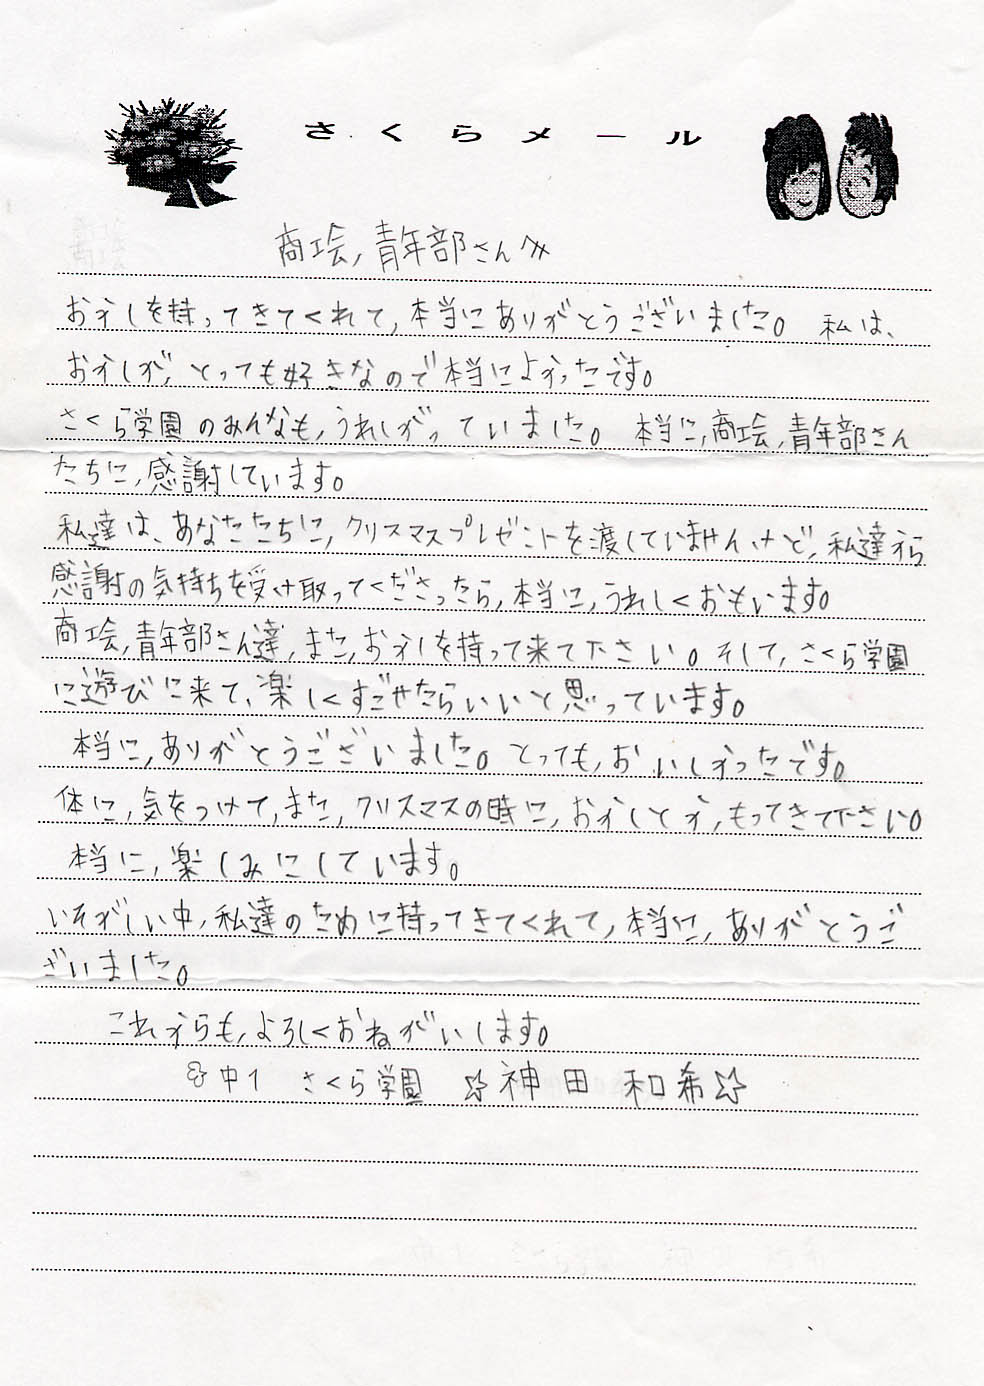 さくらメール
商工会,青年部さんへ
おかしを持ってきてくれて,本当にありがとうございました。 私は、
おかしが,とっても好きなので本当によかったです。
さくら学園のみんなも,うれしがっていました。 本当に,商工会,青年部さん
たちに,感謝しています。
私達は、あなたたちに,クリスマスプレゼントを渡していませんけど,私達から
感謝の気持ちを受け取ってくださったら,本当に,うれしくおもいます。
商工会,青年部さん達,また,おかしを持って来て下さい。そして,さくら学園
に遊びに来て、楽しくすごせたらいいと思っています。
本当に,ありがとうございました。とっても,おいしかったです。
体に,気をつけて,また,クリスマスの時に,おかしとか,もってきて下さい。
本当に,楽しみにしています。
いそがしい中,私達のために持ってきてくれて,本当に,ありがとうご
ざいました。
これからも,よろしくおねがいします。
中1 さくら学園 ☆神田 和希☆